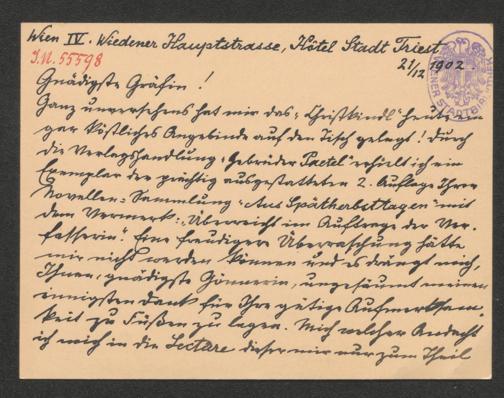 Wien IV. Wiedener Hauptstrasse, Hôtel Stadt Triest
21/12 1902.
I.N. 55598
Gnädigste Gräfin!
Ganz unversehens hat mir das „Christkindl“ heut ein
gar köstliches Angebinde auf den Tisch gelegt! Durch
die Verlagshandlung „Gebrüder Paetel“ erhielt ich ein
Exemplar der prächtig ausgestatteten 2. Auflage Ihrer
Novellen-Sammlung „Aus Spätherbsttagen“ mit
dem Vermerk: „Überreicht im Auftrage der Ver-
fasserin“. Eine freudigere Überraschung hätte
mir nicht werden können und es drängt mich,
Ihnen, gnädigste Gönnerin, ungesäumt meinen
innigsten Dank für Ihre gütige Aufmerksam-
keit zu Füßen zu legen. Mit welcher Andacht
ich mich in die Lectüre dieser mir nur zum Theil